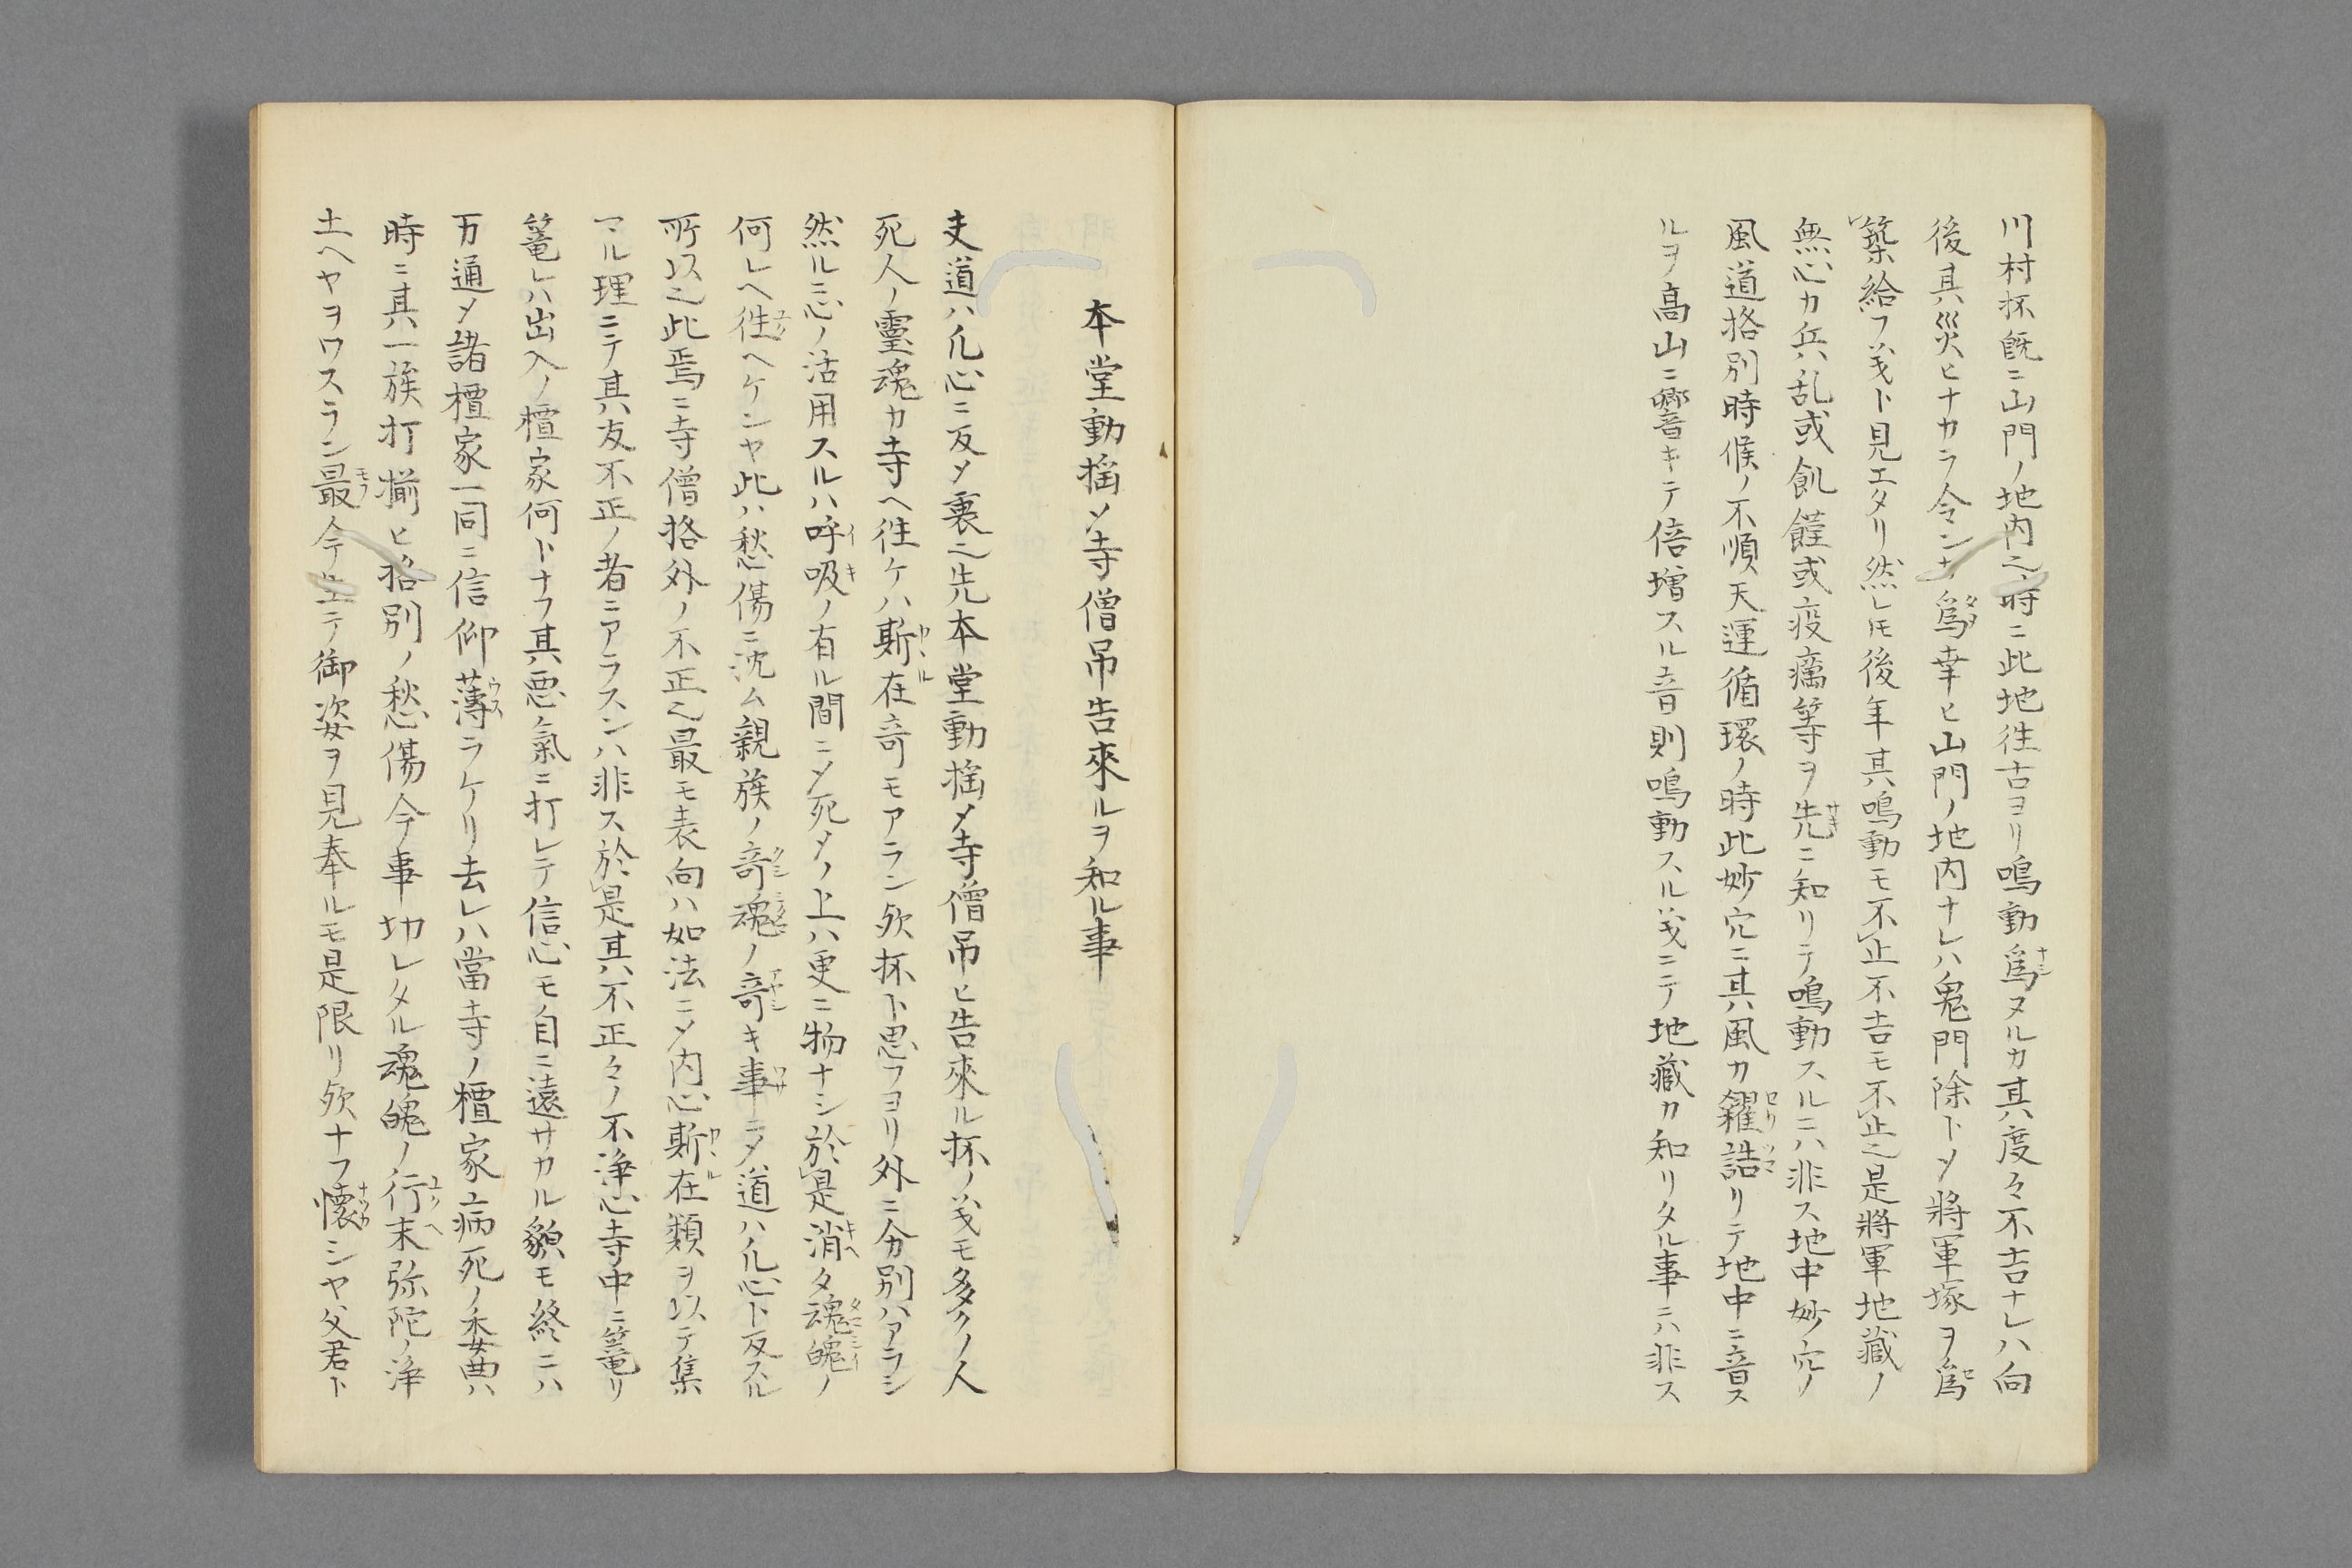 川村抔既ニ山門ノ地内之時ニ此地徃古ヨリ鳴動爲ヌルカ其度々不吉ナレハ向
後其災ヒナカラ令ンカ爲幸ヒ山門ノ地内ナレハ鬼門除トメ將軍塚ヲ爲
築給フ義ト見エタリ然レ𪜈後年其鳴動モ不止不吉モ不止之是將軍地藏ノ
無心カ兵乱或飢饉或疫癘等ヲ先ニ知リテ鳴動スルニハ非ス地中妙穴ノ
風道格別時候ノ不順天運循環ノ時此妙穴ニ其風カ糴誥リテ地中ニ音ス
ルヲ高山ニ響キテ倍増スル音則鳴動スル義ニテ地藏カ知リタル事ニハ非ス
本堂動揺ソ寺僧吊告來ルヲ知ル事
夫道ハ凡心ニ反メ裏之先本堂動揺メ寺僧吊ヒ告來ル抔ノ義モ多クノ人
死人ノ靈魂カ寺ヘ徃ケハ斯在竒モアラン欤抔ト思フヨリ外ニ分別ハアラシ
然ルニ心ノ活用スルハ呼吸ノ有ル間ニメ死メノ上ハ更ニ物ナシ於是消タ魂魄ノ
何レヘ徃ヘケンヤ此ハ愁傷ニ沈ム親族ノ竒魂ノ竒キ事ニメ道ハ凡心ト反スル
所以之此焉ニ寺僧格外ノ不正之最モ表向ハ如法ニメ内心斯在類ヲ以テ集
マル理ニテ其友不正ノ者ニアラスンハ非ス於是其不正々ノ不浄心寺中ニ篭リ
篭レハ出入ノ檀家何トナフ其悪氣ニ打レテ信心モ自ニ遠サカル貌モ終ニハ
万通メ諸檀家一同ニ信仰薄ラケリ去レハ當寺ノ檀家病死ノ委曲ハ
時ニ其一族打揃ヒ格別ノ愁傷今事切レタル魂魄ノ行末弥陀ノ浄
土ヘヤヲワスラン最今生ニテ御姿ヲ見奉ルモ是限リ欤ナフ懷シヤ父君ト